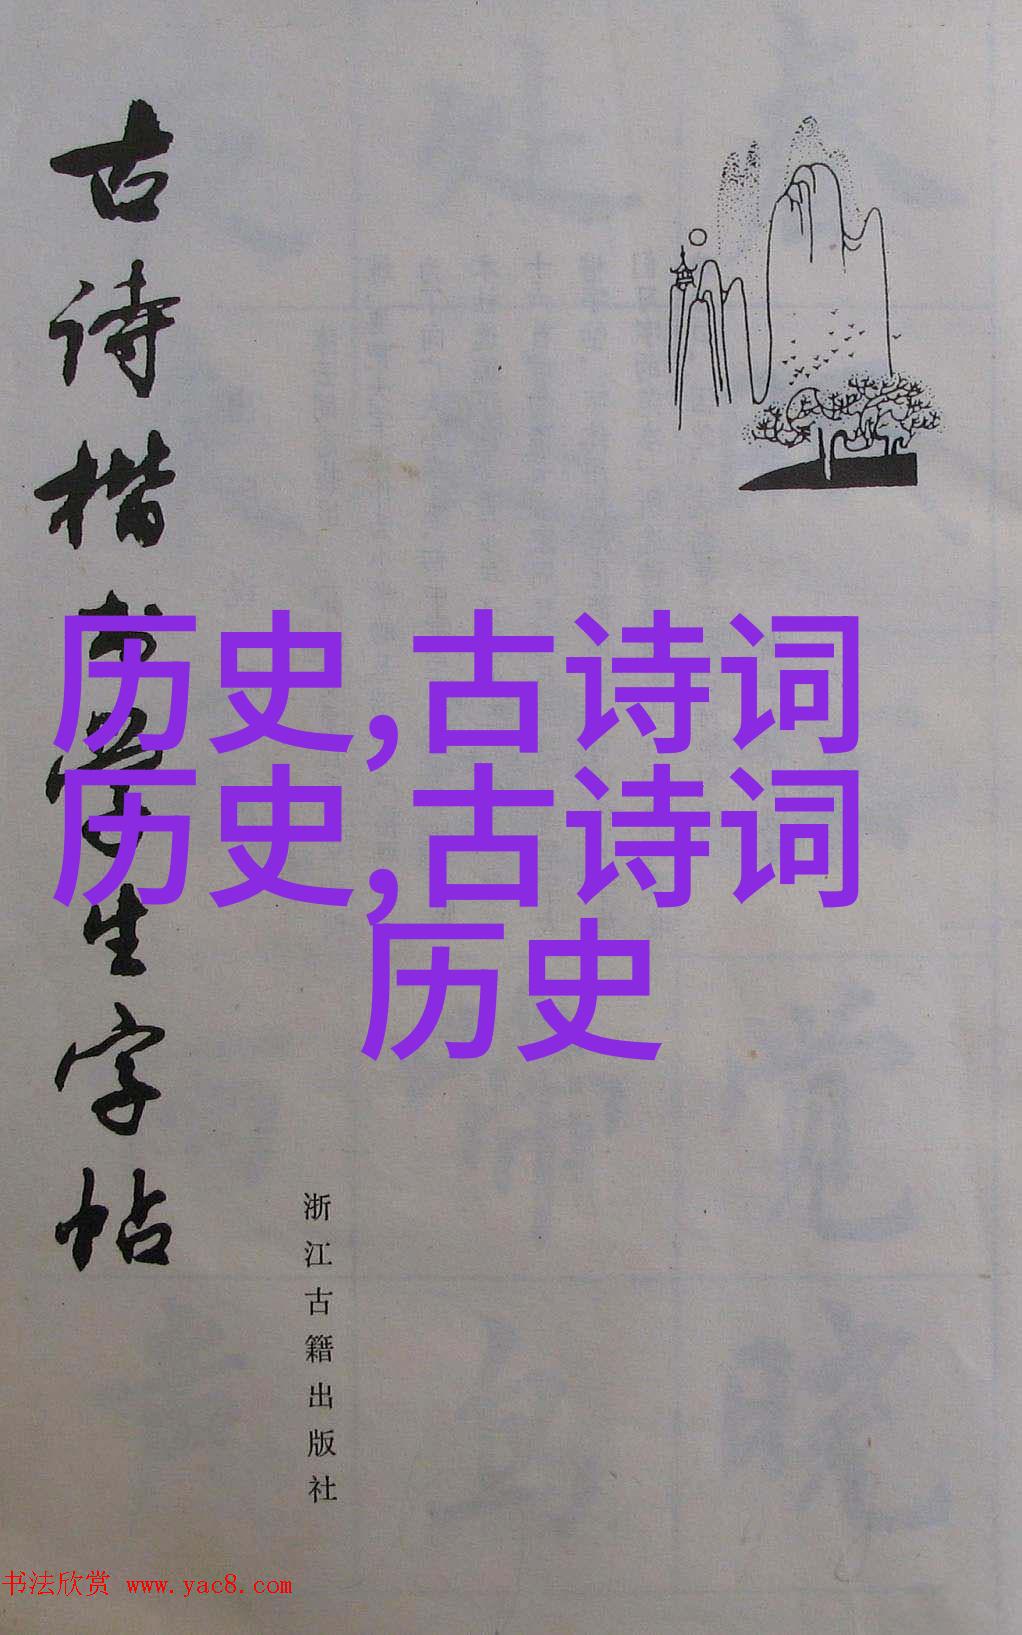 古诗楷书学生字帖
历史,古诗词
历史,古诗词
历史
浙江古籍出版社
书法欣赏 www.yac8.com